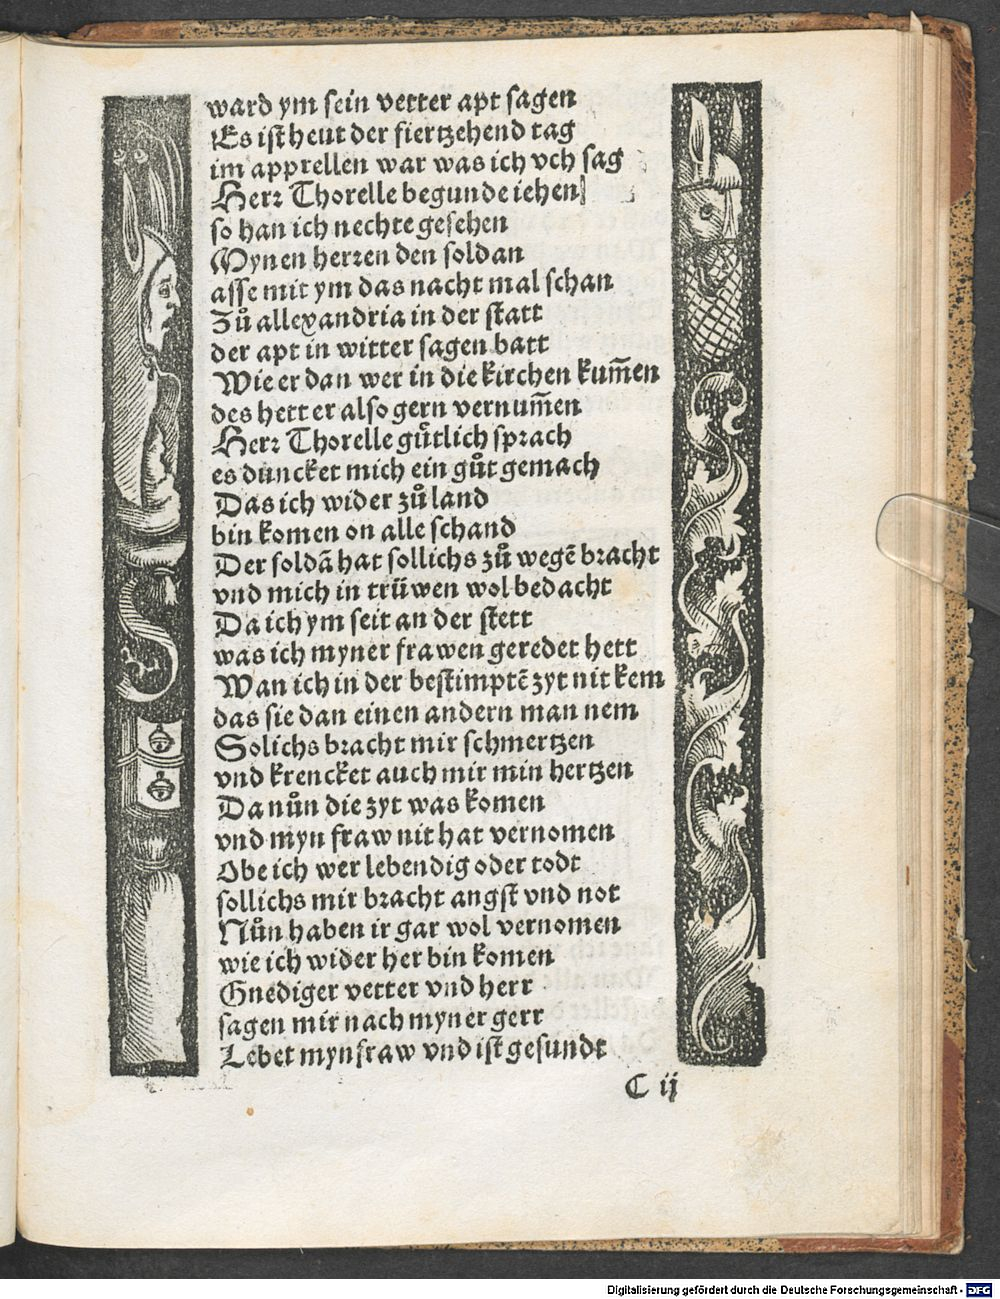 ward ym sein vetter apt sagen
Es ist heut der fiertzehend tag
im apprellen war was ich vch sag
Herr Thorelle begunde iehen
so han ich nechte gesehen
Mynen herren den soldan
asse mit ym das nacht mal schan
Zů allexandria in der statt
der apt in witter sagen batt
Wie er dan wer in die kirchen kum̄en
des hett er also gern vernum̄en
Herr Thorelle gůtlich sprach
es duncket mich ein gůt gemach
Das ich wider zů land
bin komen on alle schand
Der soldā hat sollichs zů wegē bracht
vnd mich in trüwen wol bedacht
Da ich ym seit an der stett
was ich myner frawen geredet hett
Wan ich in der bestimptē zyt nit kem
das sie dan einen andern man nem
Solichs bracht mir schmertzen
vnd krencket auch mir min hertzen
Da nůn die zyt was komen
vnd myn fraw nit hat vernomen
Obe ich wer lebendig oder todt
sollichs mir bracht angst vnd not
Nůn haben ir gar wol vernomen
wie ich wider her bin komen
Gnediger vetter vnd herr
sagen mir nach myner gerr
Lebet myn fraw vnd ist gesundt
C ij
Digitalisierung gefördert durch die Deutsche Forschungsgemeinschaft - DFG